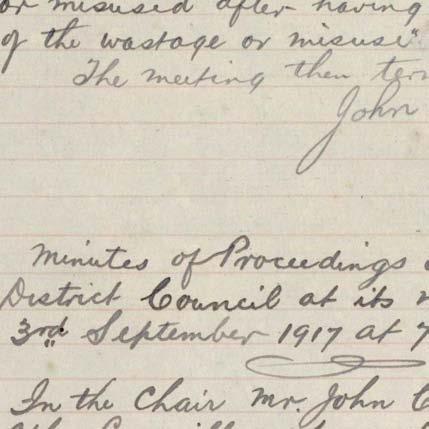 or misused after having
of the wastage or misuse".
The meeting then ter
John
Minutes of Proceedings
District Council at its
3rd September 1917 at 7
In the Chair Mr. John C